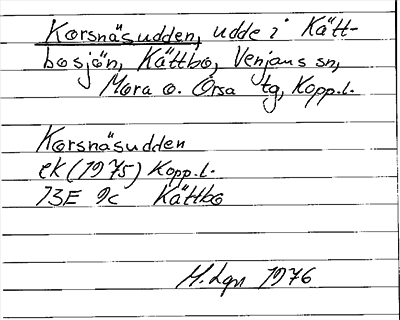 Korsnäsudden, udde i Kätt-
bosjön, Kättbo, Venjans sn,
Mora o. Orsa tg, Kopp.l.
Korsnäsudden
ek (1975) Kopp.l.
13E 9c Kättbo
M. Lgn 1976